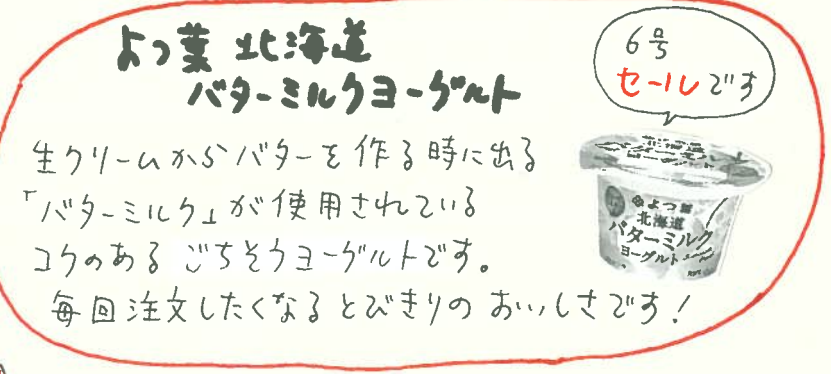 よつ葉 北海道
バターミルクヨーグルト
6号
セールです
生クリームからバターを作る時に出る
「バターミルク」が使用されている
コクのある ごちそうヨーグルトです。
毎回注文したくなるとびきりの おいしさです!
よつ葉
北海道
バターミルク
ヨーグルト